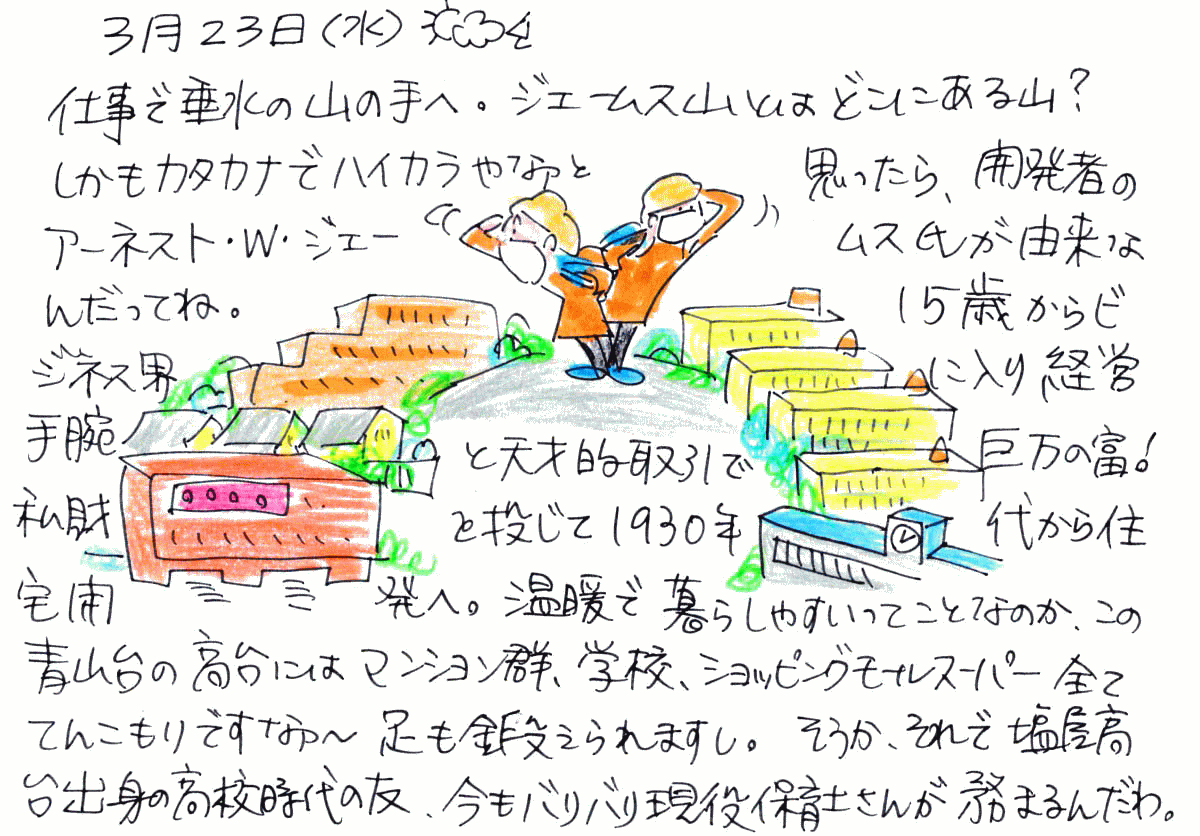 3月23日(水)
仕事で垂水の山の手へ。ジェームス山とはどこにある山?
しかもカタカナでハイカラやなぁと思ったら、開発者の
アーネスト・W・ジェームス氏が由来な
んだってね。15歳からビ
ジネス界に入り経営
手腕と天才的取引で巨万の富!
私財を投じて1930年代から住
宅開発へ。温暖で暮らしやすいってことなのか、この
青山台の高台にはマンション群、学校、ショッピングモールスーパー全て
てんこもりですなぁ〜足も鍛えられますし。そうか、それで塩屋高
台出身の高校時代の友、今もバリバリ現役保育士さんが務まるんだわ。